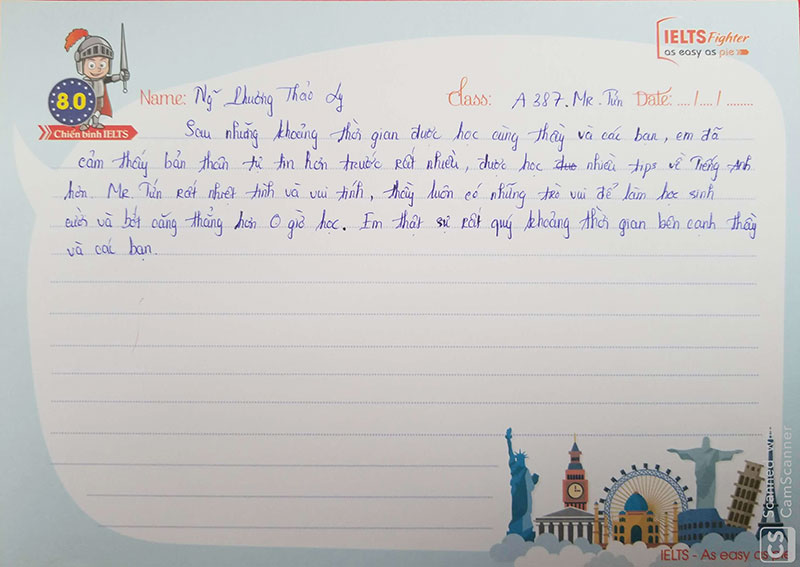 IELTS Fighter
as easy as pie
80
Chiến binh IELTS
Name: Ng~ Phương Thảo Ly Class: A387. Mr. Tín Date: .... /.... / ........
Sau những khoảng thời gian được học cùng thầy và các bạn, em đã
cảm thấy bản thân tự tin hơn trước rất nhiều, được học nhiều tips về Tiếng Anh
hơn. Mr. Tín rất nhiệt tình và vui tính, thầy luôn có những trò vui để làm học sinh
cười và bớt căng thẳng hơn ở giờ học. Em thật sự rất quý khoảng thời gian bên cạnh thầy
và các bạn.
IELTS - As easy as pie
CS
Scanned w
CamScanner